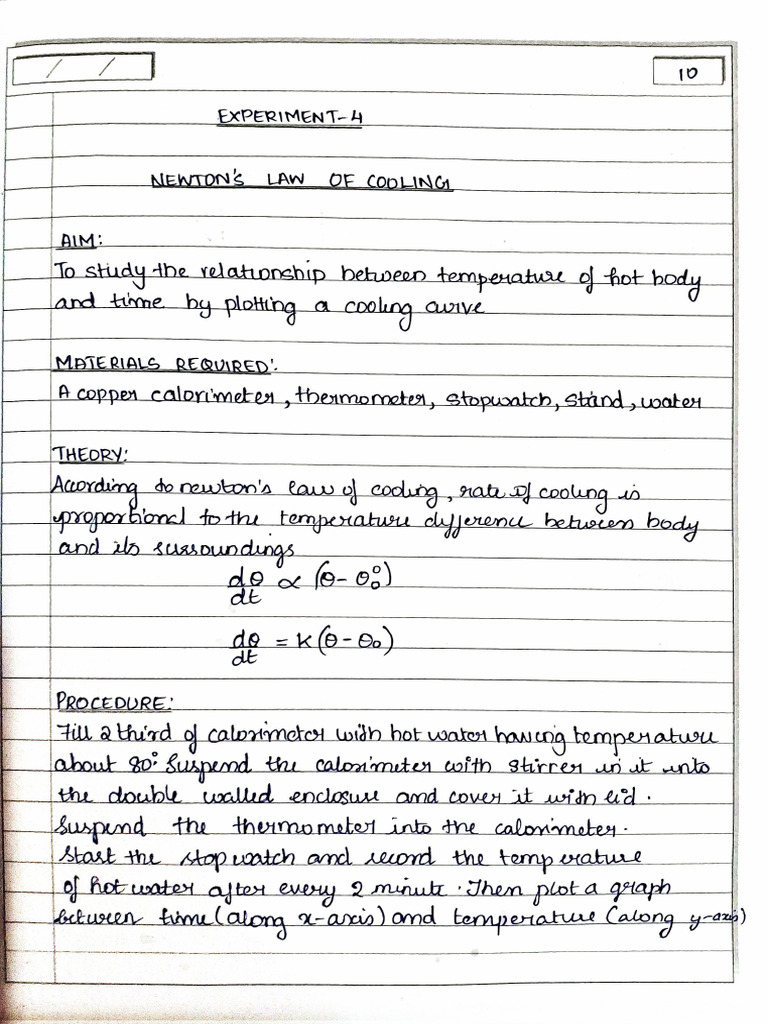 / /
10
EXPERIMENT-4
NEWTON'S LAW OF COOLING
AIM:
To study the relationship between temperature of hot body
and time by plotting a cooling curve
MATERIALS REQUIRED:
A copper calorimeter, thermometer, stopwatch, stand, water
THEORY:
According to newton's law of cooling, rate of cooling is
proportional to the temperature difference between body
and its surroundings
dθ/dt ∝ (θ - θ₀°)
dθ/dt = K(θ - θ₀)
PROCEDURE:
Fill 2 third of calorimeter with hot water having temperature
about 80°. Suspend the calorimeter with stirrer in it into
the double walled enclosure and cover it with lid.
Suspend the thermometer into the calorimeter.
Start the stop watch and record the temperature
of hot water after every 2 minute. Then plot a graph
between time (along x-axis) and temperature (along y-axis)